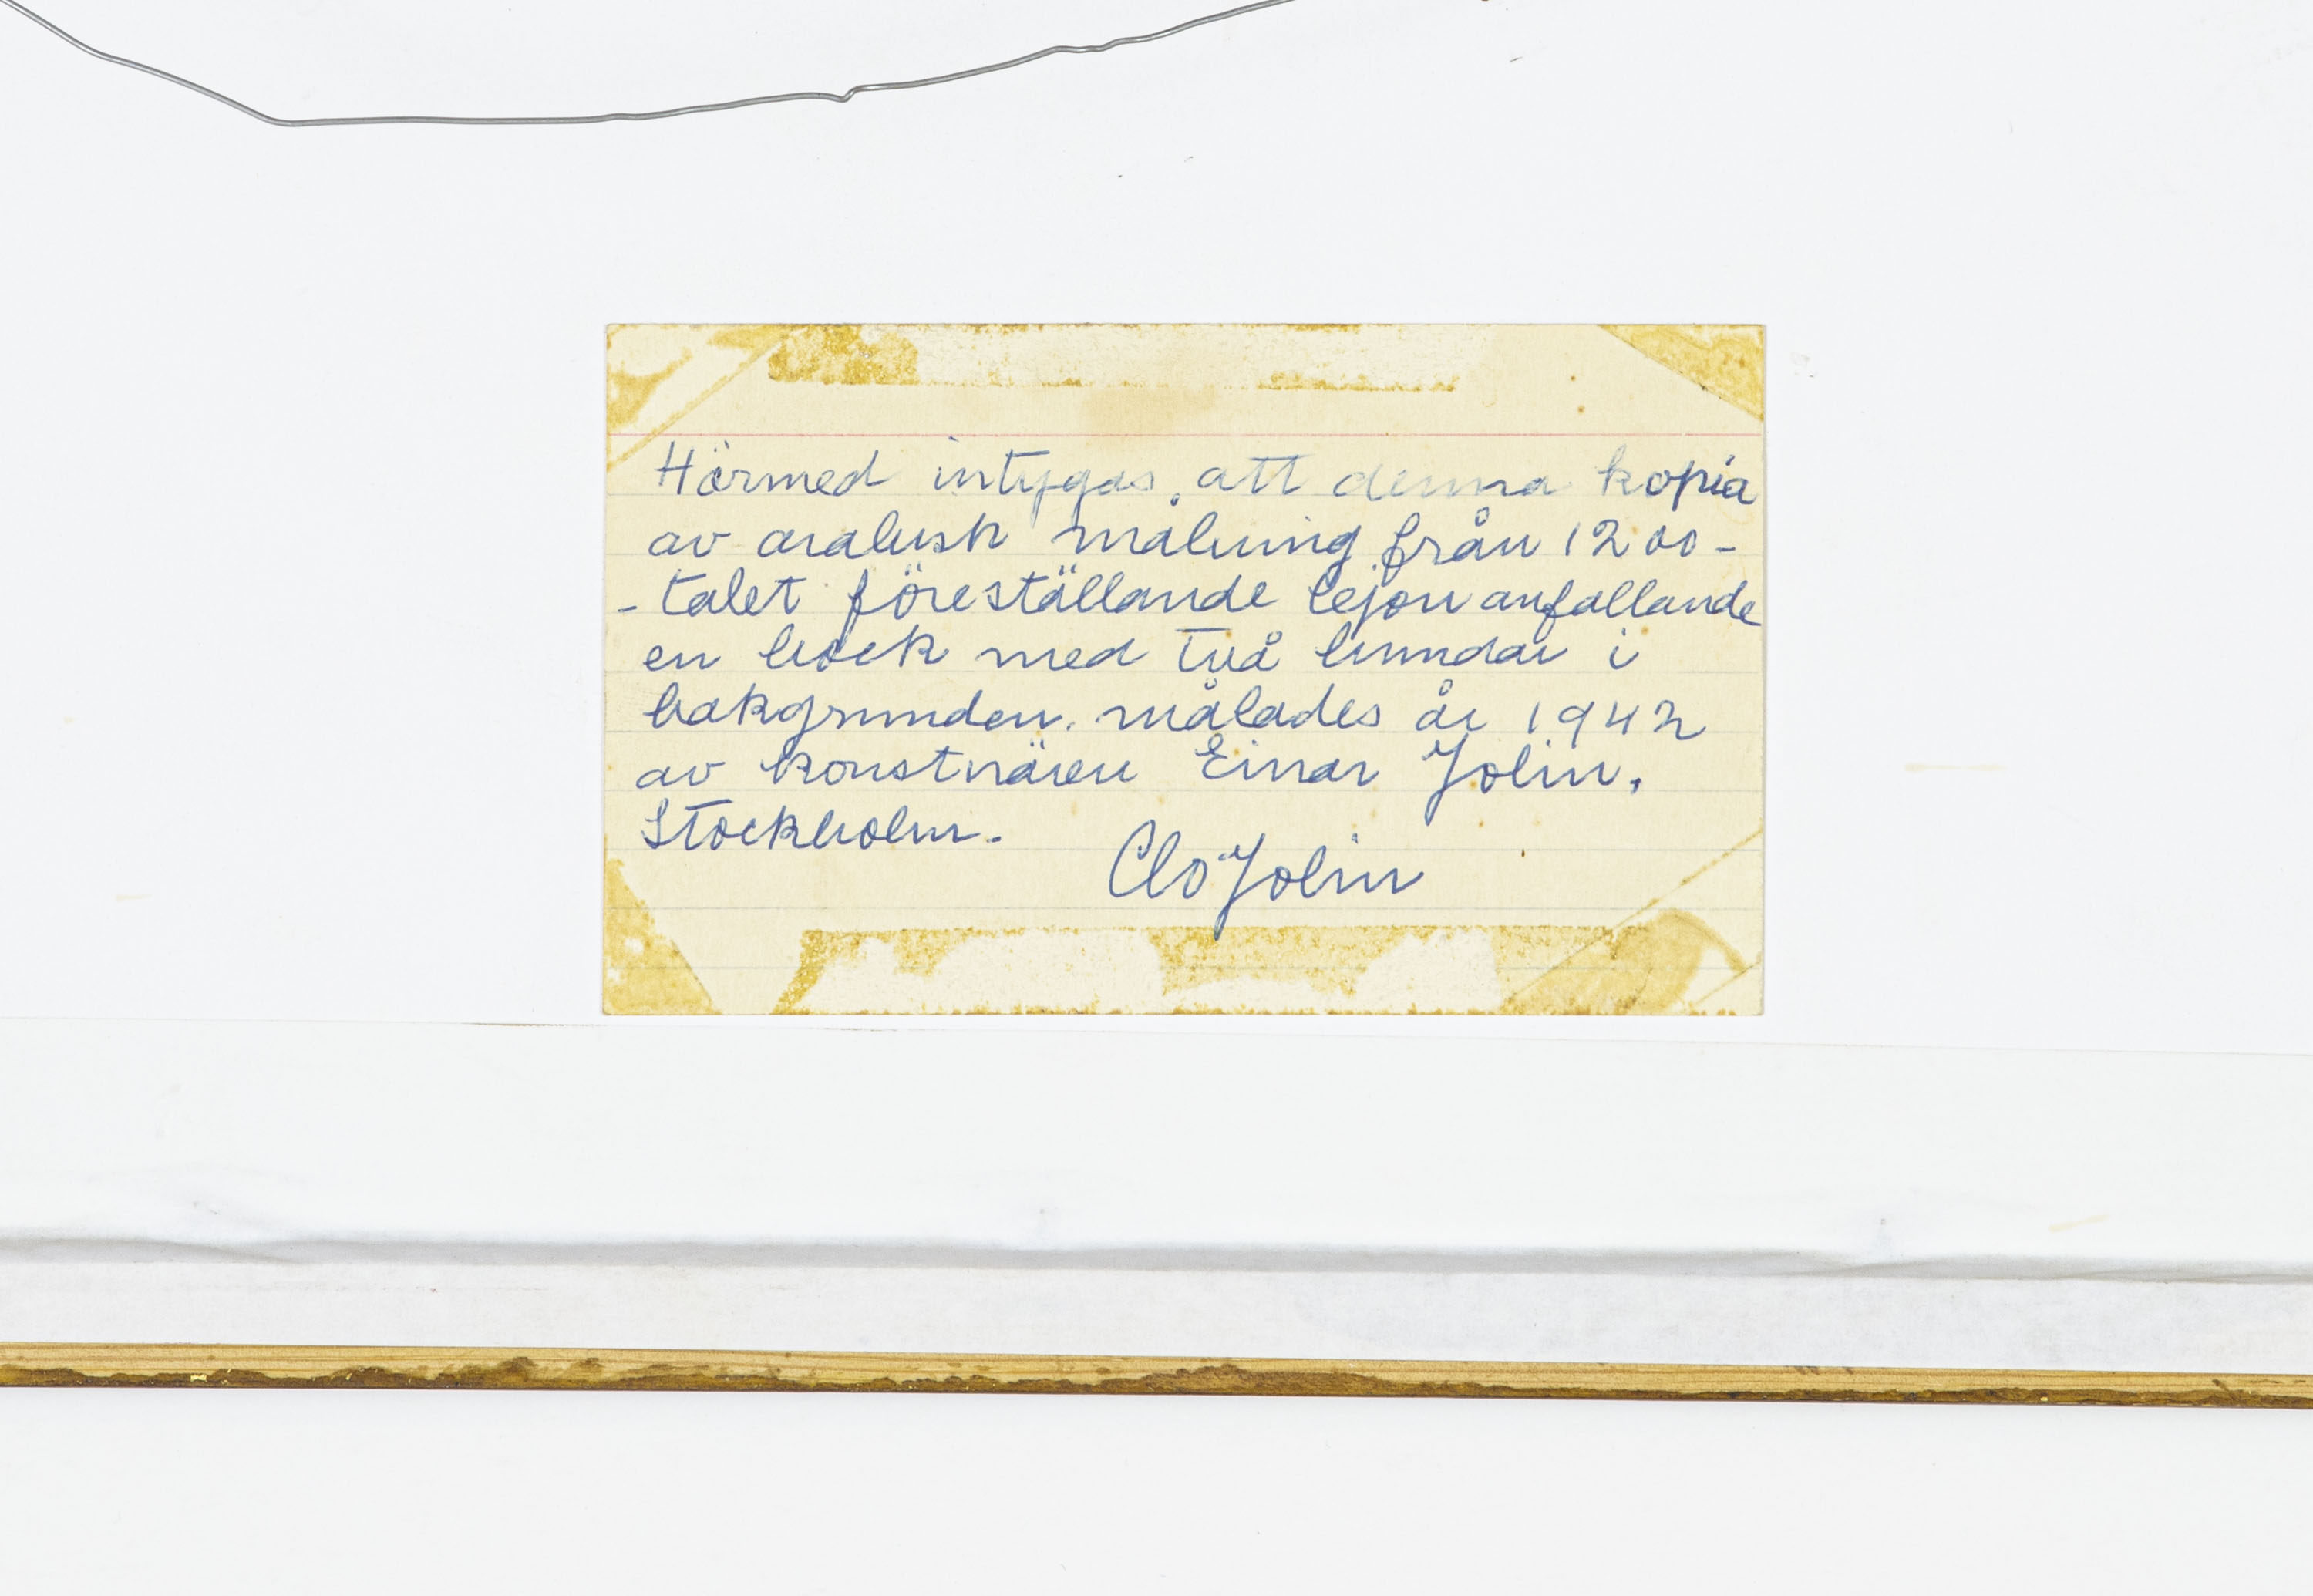 Härmed intygas, att denna kopia
av arabisk målning från 1200-
-talet föreställande lejon anfallande
en bock med två hundar i
bakgrunden, målades år 1942
av konstnären Einar Jolin,
Stockholm.
Clo Jolin